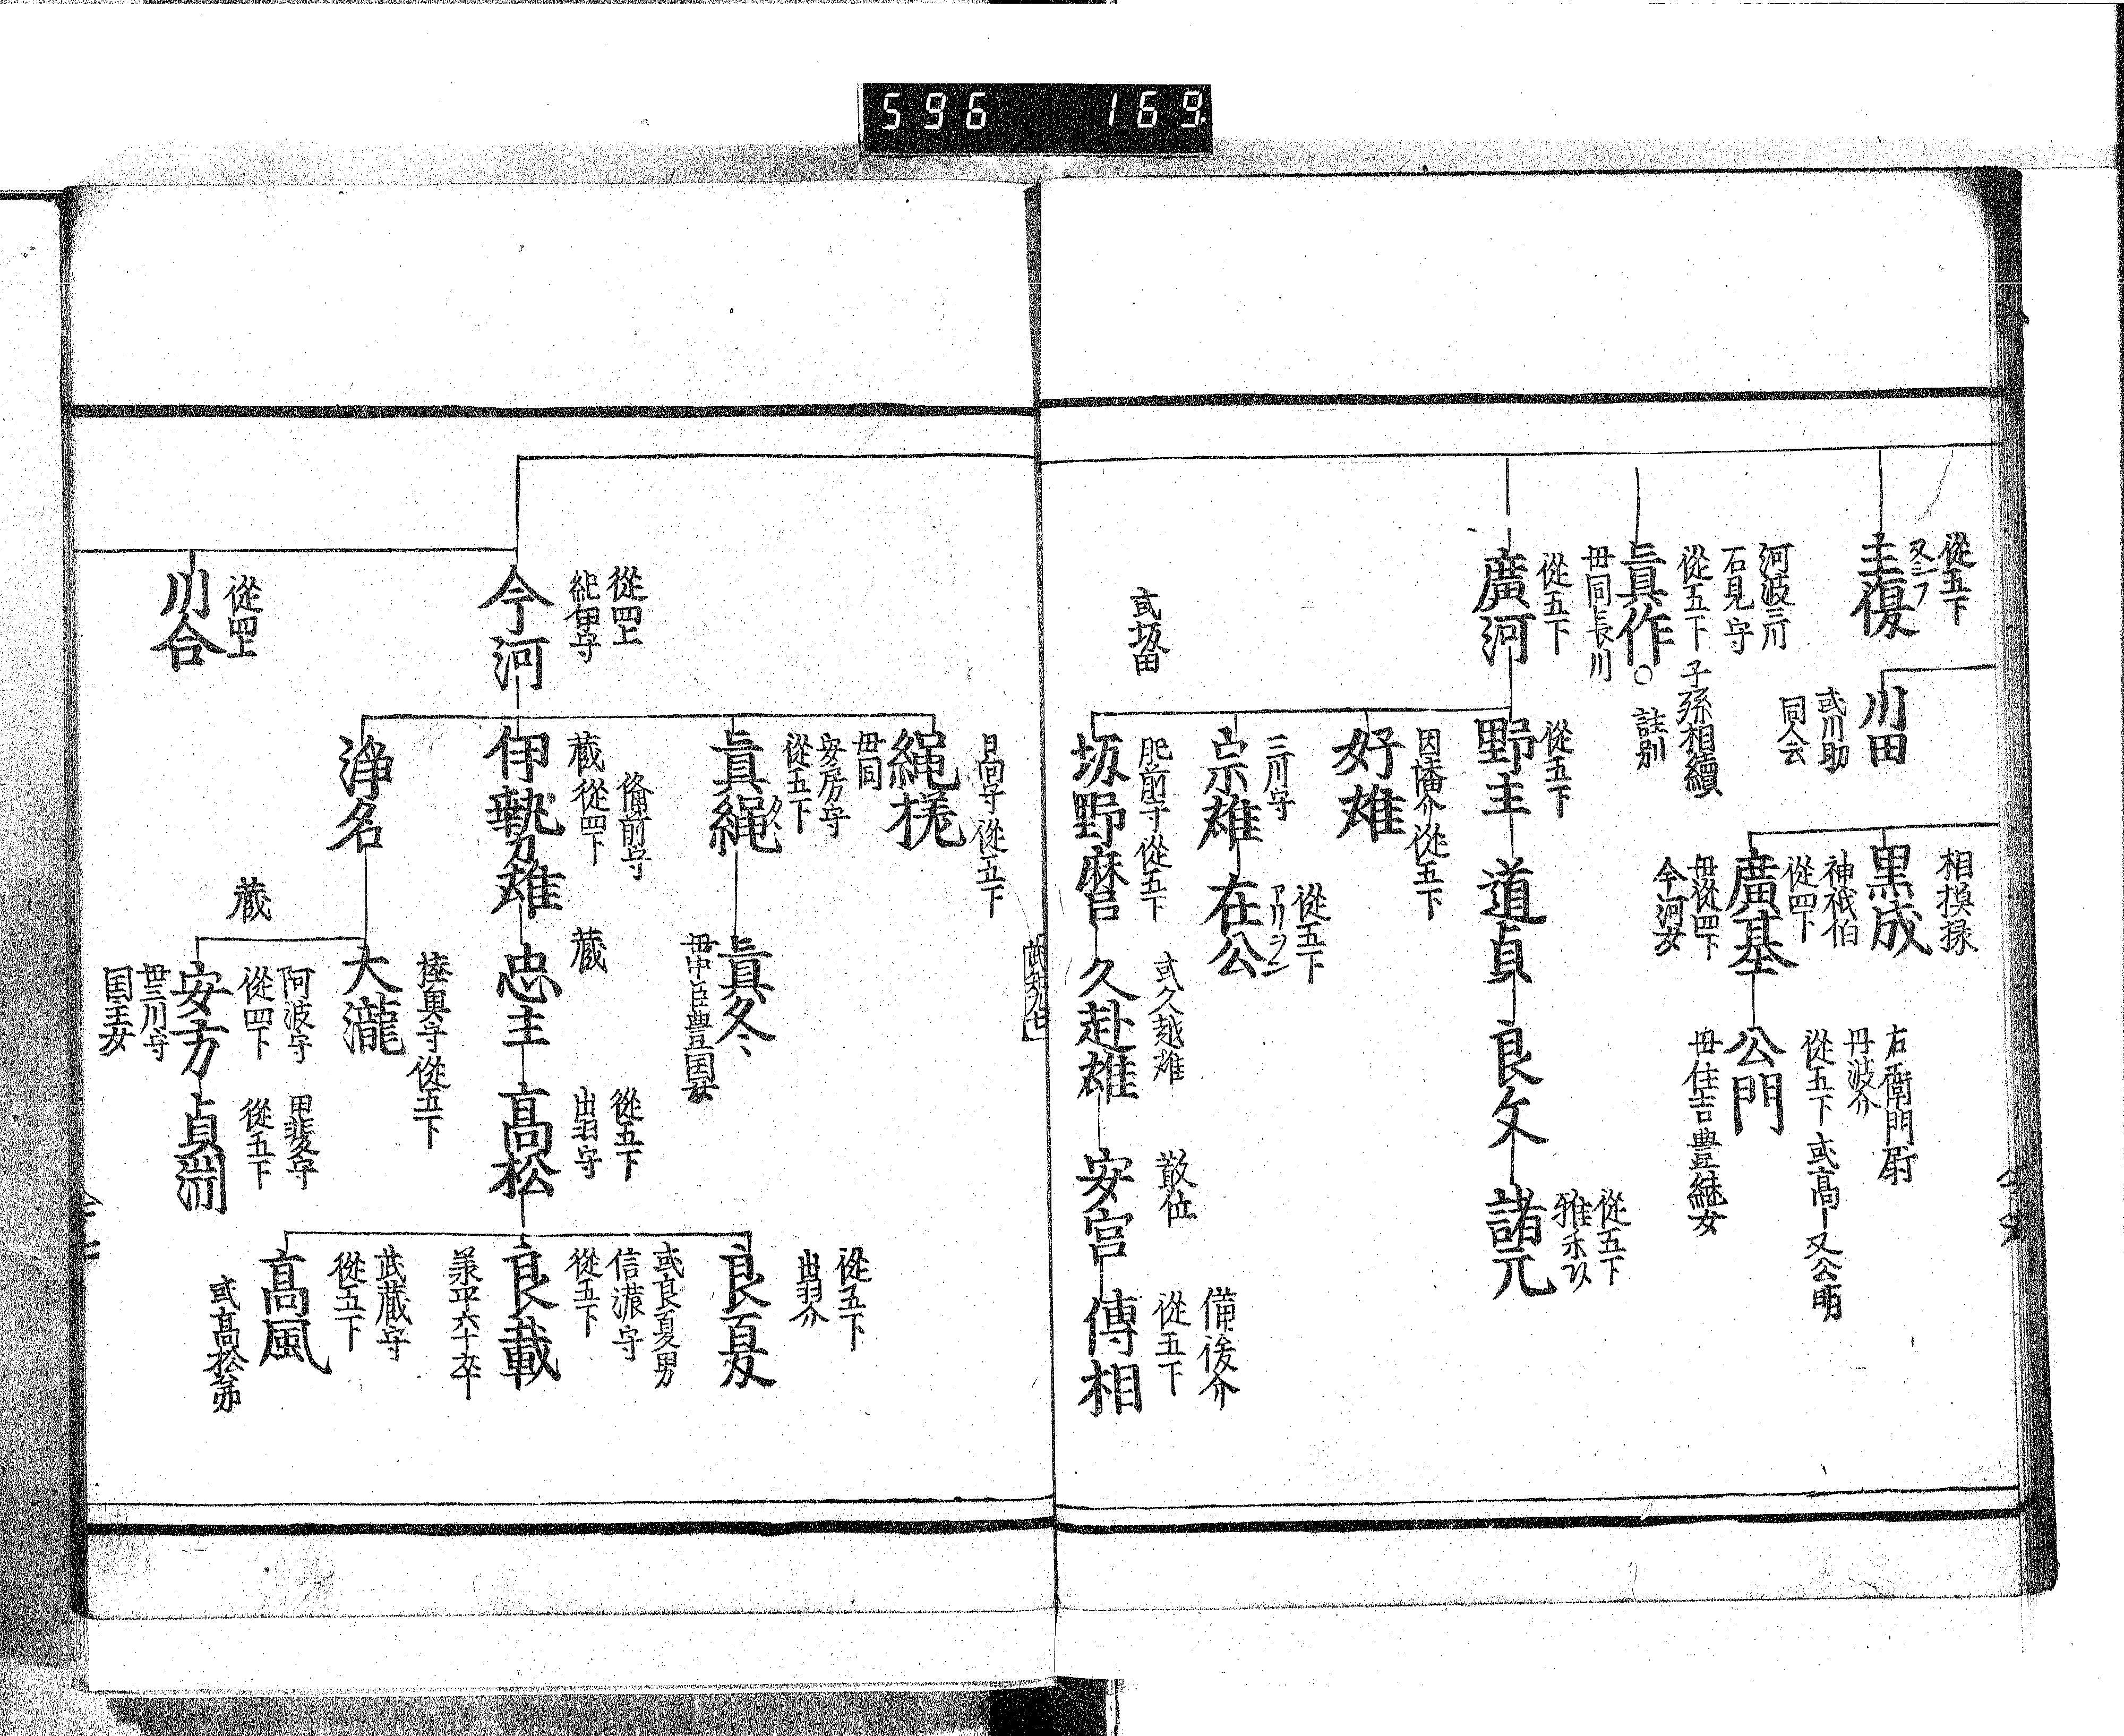 596 169
從五下
主復
川田
或川助
同人云
相摸掾
黒成
神祇伯
從四下
廣基
母從四下
今河女
右衛門尉
丹波介
從五下 或高一 又公明
公門
母住吉豊継女
河波三川
石見守
從五下 子孫相續
眞作○ 註別
母同長川
從五下
廣河
從五下
野主
道貞
良文
從五下
諸元
因幡介 從五下
好雄
三川守
宗雄
從五下
在公
或坂田
肥前守 從五下
坂野麿
或久越雄
久赴雄
散位
安宮
備後介
從五下
傳相
從四上
紀伊守
今河
日向守 從五下
繩㧞
母同
安房守
從五下
眞繩
眞冬
母中臣豊国女
備前守
蔵 從四下
伊勢雄
蔵
忠主
從五下
出羽守
高松
從五下
出羽介
良夏
或良夏男
信濃守
從五下
良載
承平六十卒
武蔵守
從五下
高風
或高松弟
淨名
陸奥守 從五下
大瀧
蔵
阿波守
從四下
安方
母三川守
国主女
甲斐守
從五下
貞淵
從四上
川合